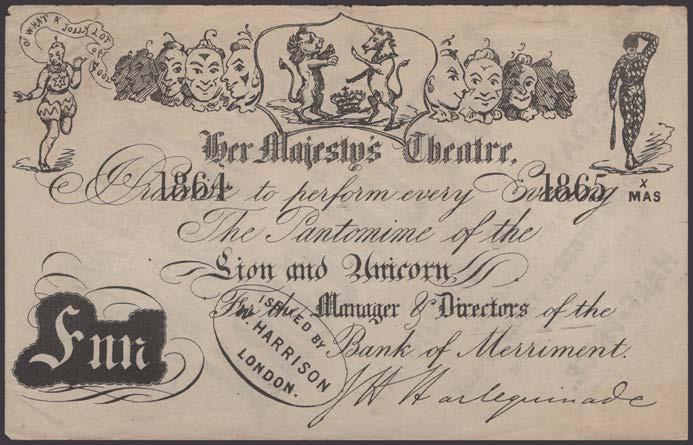 O! WHAT A JOLLY LOT
Her Majesty's Theatre.
1864 1865
I Promise to perform every Evening
X
MAS
The Pantomime of the
Lion and Unicorn,
For the Manager & Directors of the
Bank of Merriment.
Fun
ISSUED BY
W. HARRISON
LONDON.
J H Harlequinade